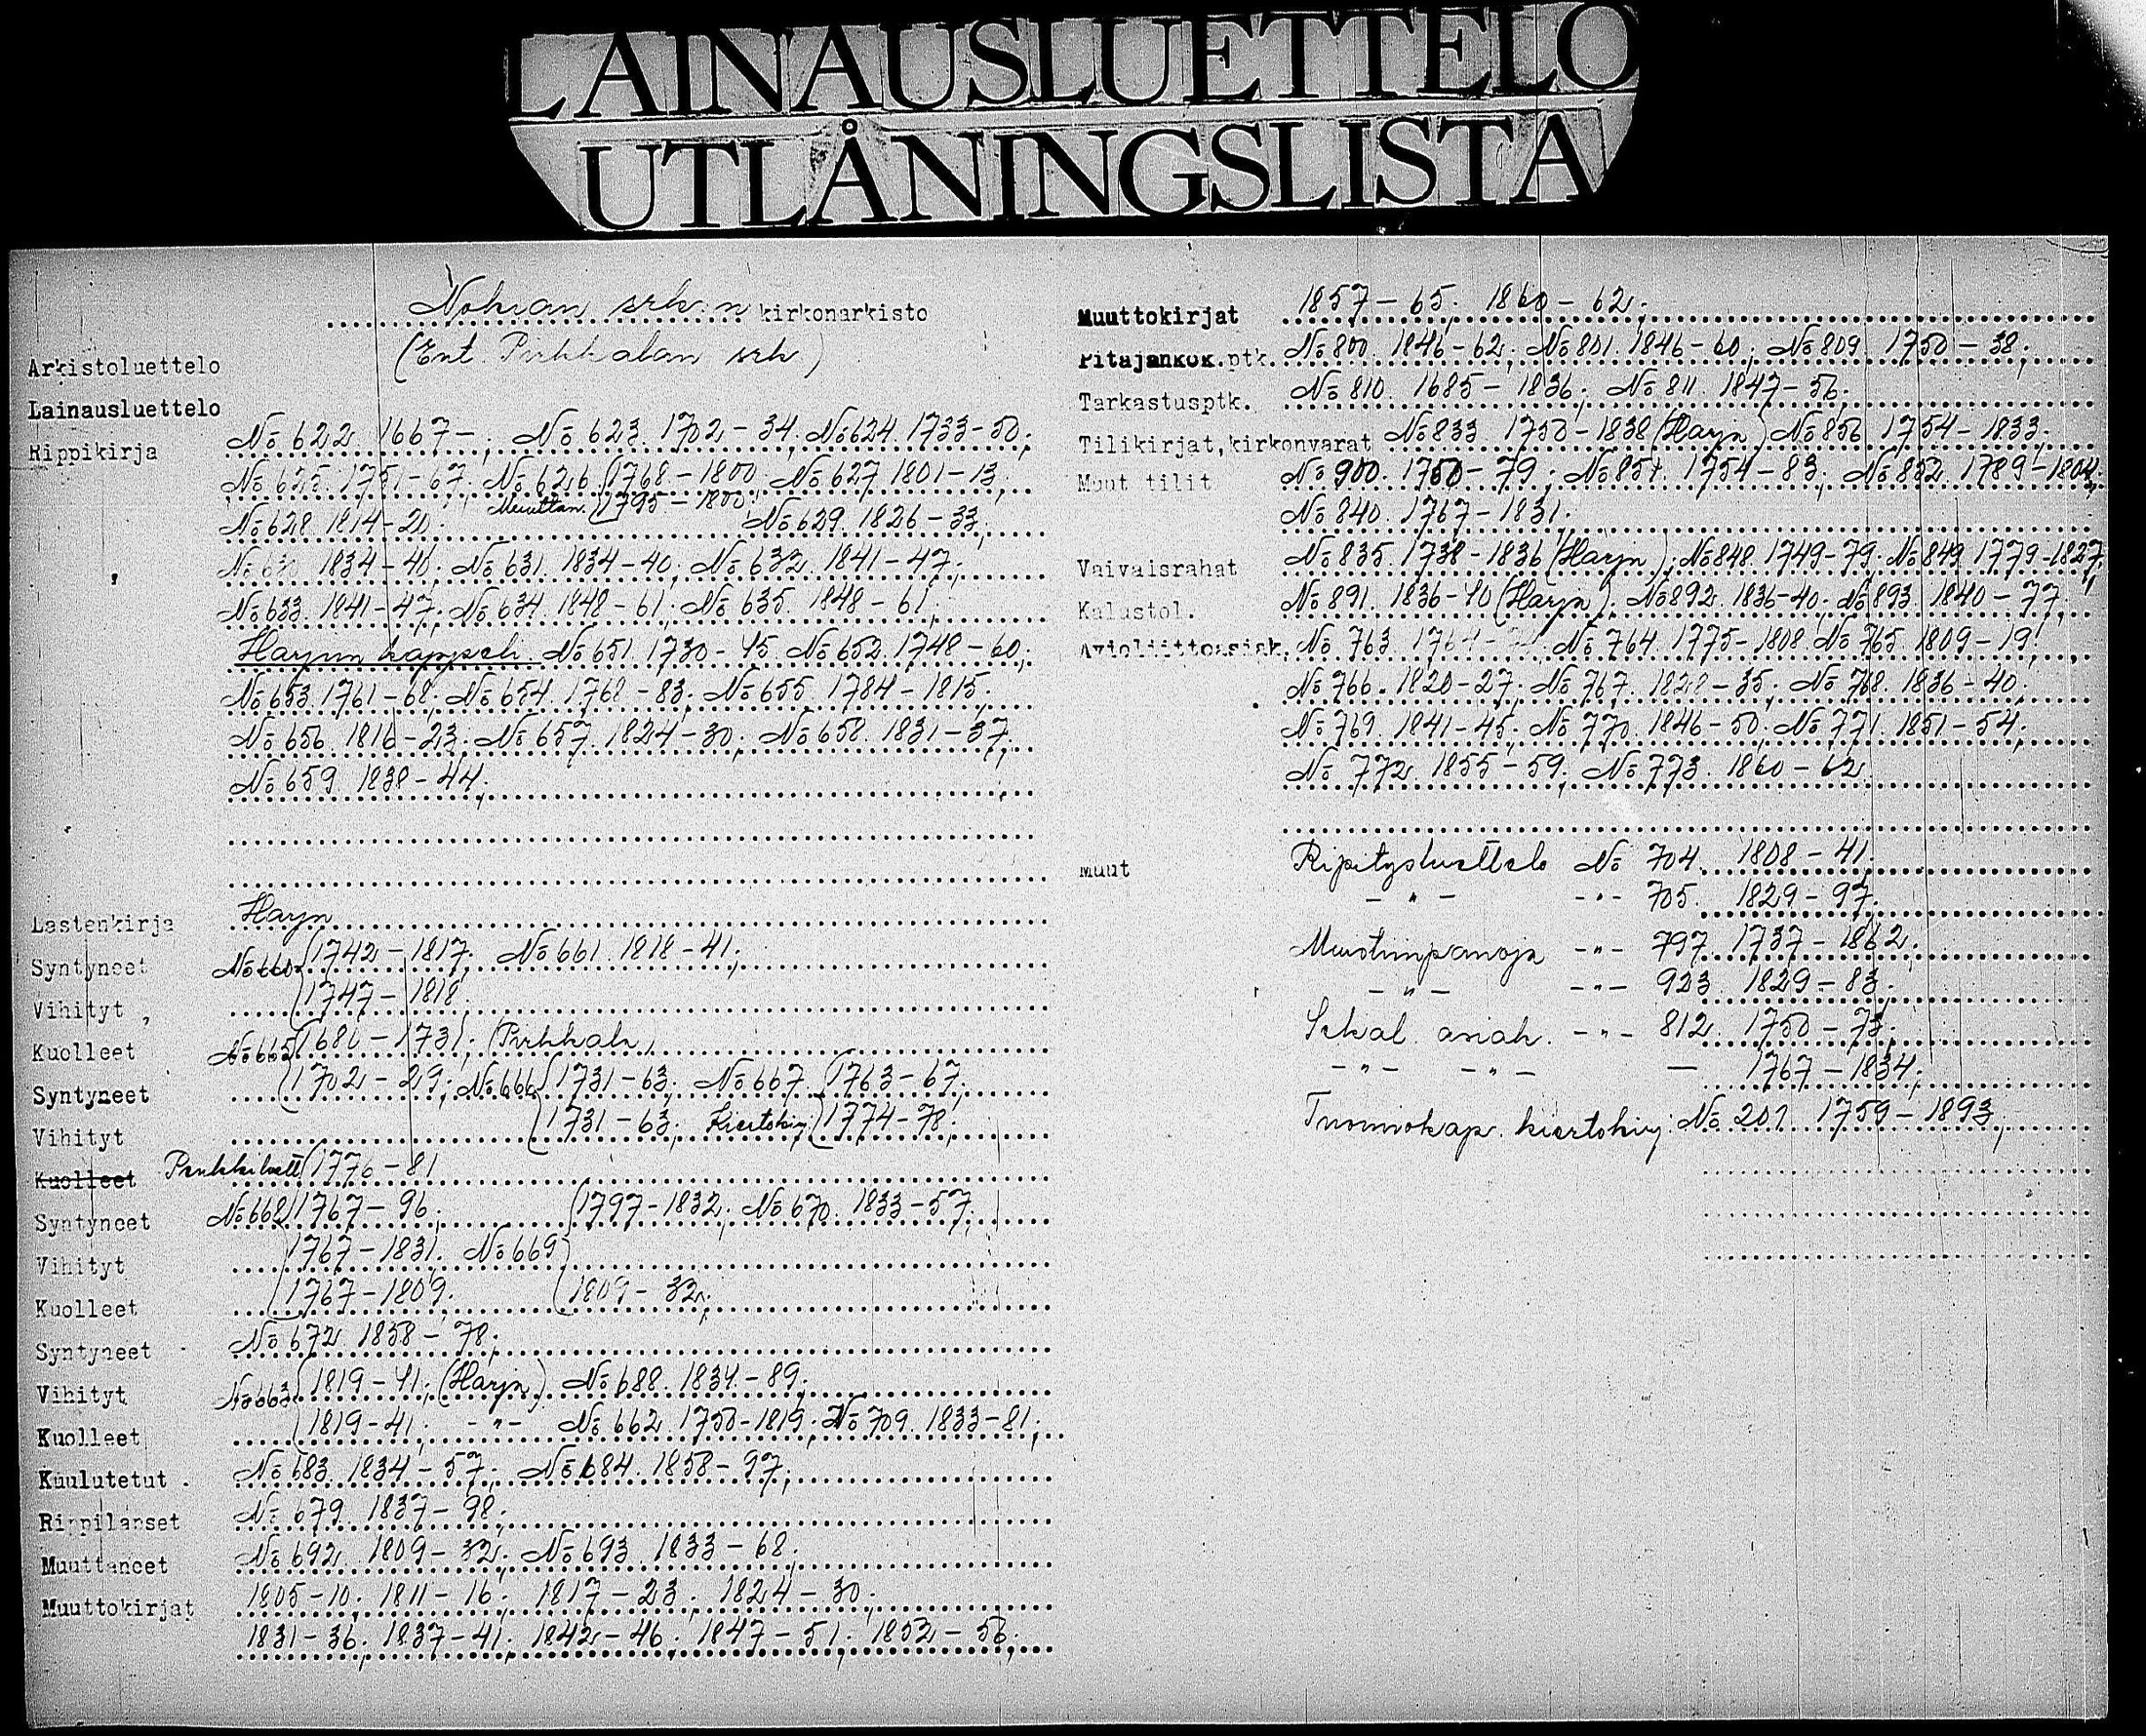 LAINAUSLUETTELO
UTLÅNINGSLISTA
Nokian srk:n kirkonarkisto
Arkistoluettelo (Ent. Pirkkalan srk)
Lainausluettelo
Rippikirja No 622. 1667- ; No 623. 1702-34; No 624. 1733-50;
No 625. 1751-67. No 626. (1768-1800. No 627 1801-13.
Muuttan. (1795-1800;
No 628. 1814-20. No 629. 1826-33;
1834-40; No 631. 1834-40; No 632. 1841-47;
No 633. 1841-47; No 634. 1848-61; No 635. 1848-61;
Harjun kappeli. No 651. 1730-45. No 652. 1748-60;
No 653. 1761-68; No 654. 1768-83; No 655. 1784-1815;
No 656. 1816-23; No 657. 1824-30; No 658. 1831-37;
No 659. 1838-44;
Lastenkirja Harju
Syntyneet No 660 (1742-1817; No 661. 1818-41;
Vihityt (1747-1818.
Kuolleet No 665 1731; (Pirkkala)
Syntyneet (1702-29; No 666 (1731-63; No 667. (1763-67;
Vihityt (1731-63; Kiertokirj. (1774-78;
Kuolleet (1776-81
Syntyneet No 668 (1767-96; (1797-1832; No 670. 1833-57;
Vihityt 1767-1831. No 669
Kuolleet 1767-1809. (1809-32;
Syntyneet No 672. 1858-78;
Vihityt No 663 (1819-41; (Harju) No 688. 1834-89;
Kuolleet (1819-41; -"- No 662. 1750-1819; No 709. 1833-81;
Kuulutetut No 683. 1834-57; No 684. 1858-97;
Rippilapset No 679. 1837-98;
Muuttaneet No 692. 1809-32; No 693. 1833-68;
Muuttokirjat 1805-10; 1811-16; 1817-23; 1824-30;
1831-36; 1837-41; 1842-46; 1847-51; 1852-56;
Muuttokirjat 1857-65; 1860-62;
Pitäjänkok.ptk. No 800. 1846-62; No 801. 1846-60; No 809. 1750-38;
Tarkastusptk. No 810. 1685-1836; No 811. 1847-56;
Tilikirjat,kirkonvarat No 833. 1750-1838 (Harju) No 856 1754-1833;
Muut tilit No 900. 1750-79; No 851. 1754-83; No 852. 1789-1804;
No 840. 1767-1831.
Vaivaisrahat No 835. 1738-1836 (Harju); No 848. 1749-79. No 849. 1779-1827;
Kalustol. No 891. 1836-40 (Harju). No 892. 1836-40; No 893. 1840-77;
Avioliittoasiak. No 763. No 764. 1775-1808. No 765. 1809-19;
No 766. 1820-27; No 767. 1828-35; No 768. 1836-40;
No 769. 1841-45; No 770. 1846-50; No 771. 1851-54;
No 772. 1855-59; No 773. 1860-62.
Muut Ripitysluettelo No 704. 1808-41.
-"- -"- 705. 1829-97.
Muistiinpanoja -"- 797. 1737-1862.
-"- -"- 923. 1829-83.
Sekal. asiak. -"- 812. 1750-73;
-"- -"- — 1767-1834;
Tuomiokap. kiertokirj. No 201. 1759-1893;